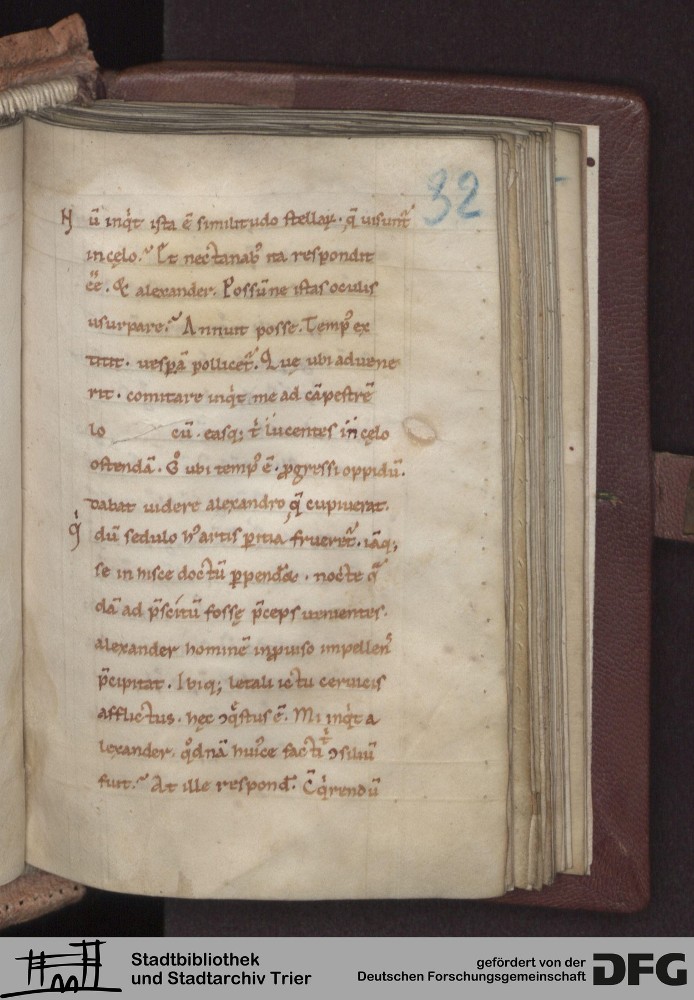 32
Nū inq̇t ista ē similitudo stellaꝝ. q̄ uisunt᷑
in cęlo. Et nectanabꝰ ita respondit
ēē. & alexander. Possūne istas oculis
usurpare. Annuit posse. Tempꝰ ex
titit. uesp̱ā pollicet᷑. Que ubi aduene
rit. comitare inq̇t me ad cāpestrē
lo cū. easq; t̄ lucentes in cęlo
ostendā. ubi tempꝰ ē. ꝓgressi oppidū.
dabat uidere alexandro q̄ cupiuerat.
dū sedulo artis ꝑitia frueret᷑. iāq;
se in hisce doctū ꝑpend& . nocte q̄
dā ad p̄scitū fossę p̄ceps uenientes.
alexander hominē inpuiso impellenꝰ
p̄cipitat. Ibiq; letali ictu ceruicis
afflictus. hęc ē. Mi inq̇t a
lexander. qͦdnā huꝰce facti ↄsiliū
fuit. At ille respond̄. rendū
Stadtbibliothek
und Stadtarchiv Trier
gefördert von der
Deutschen Forschungsgemeinschaft
DFG